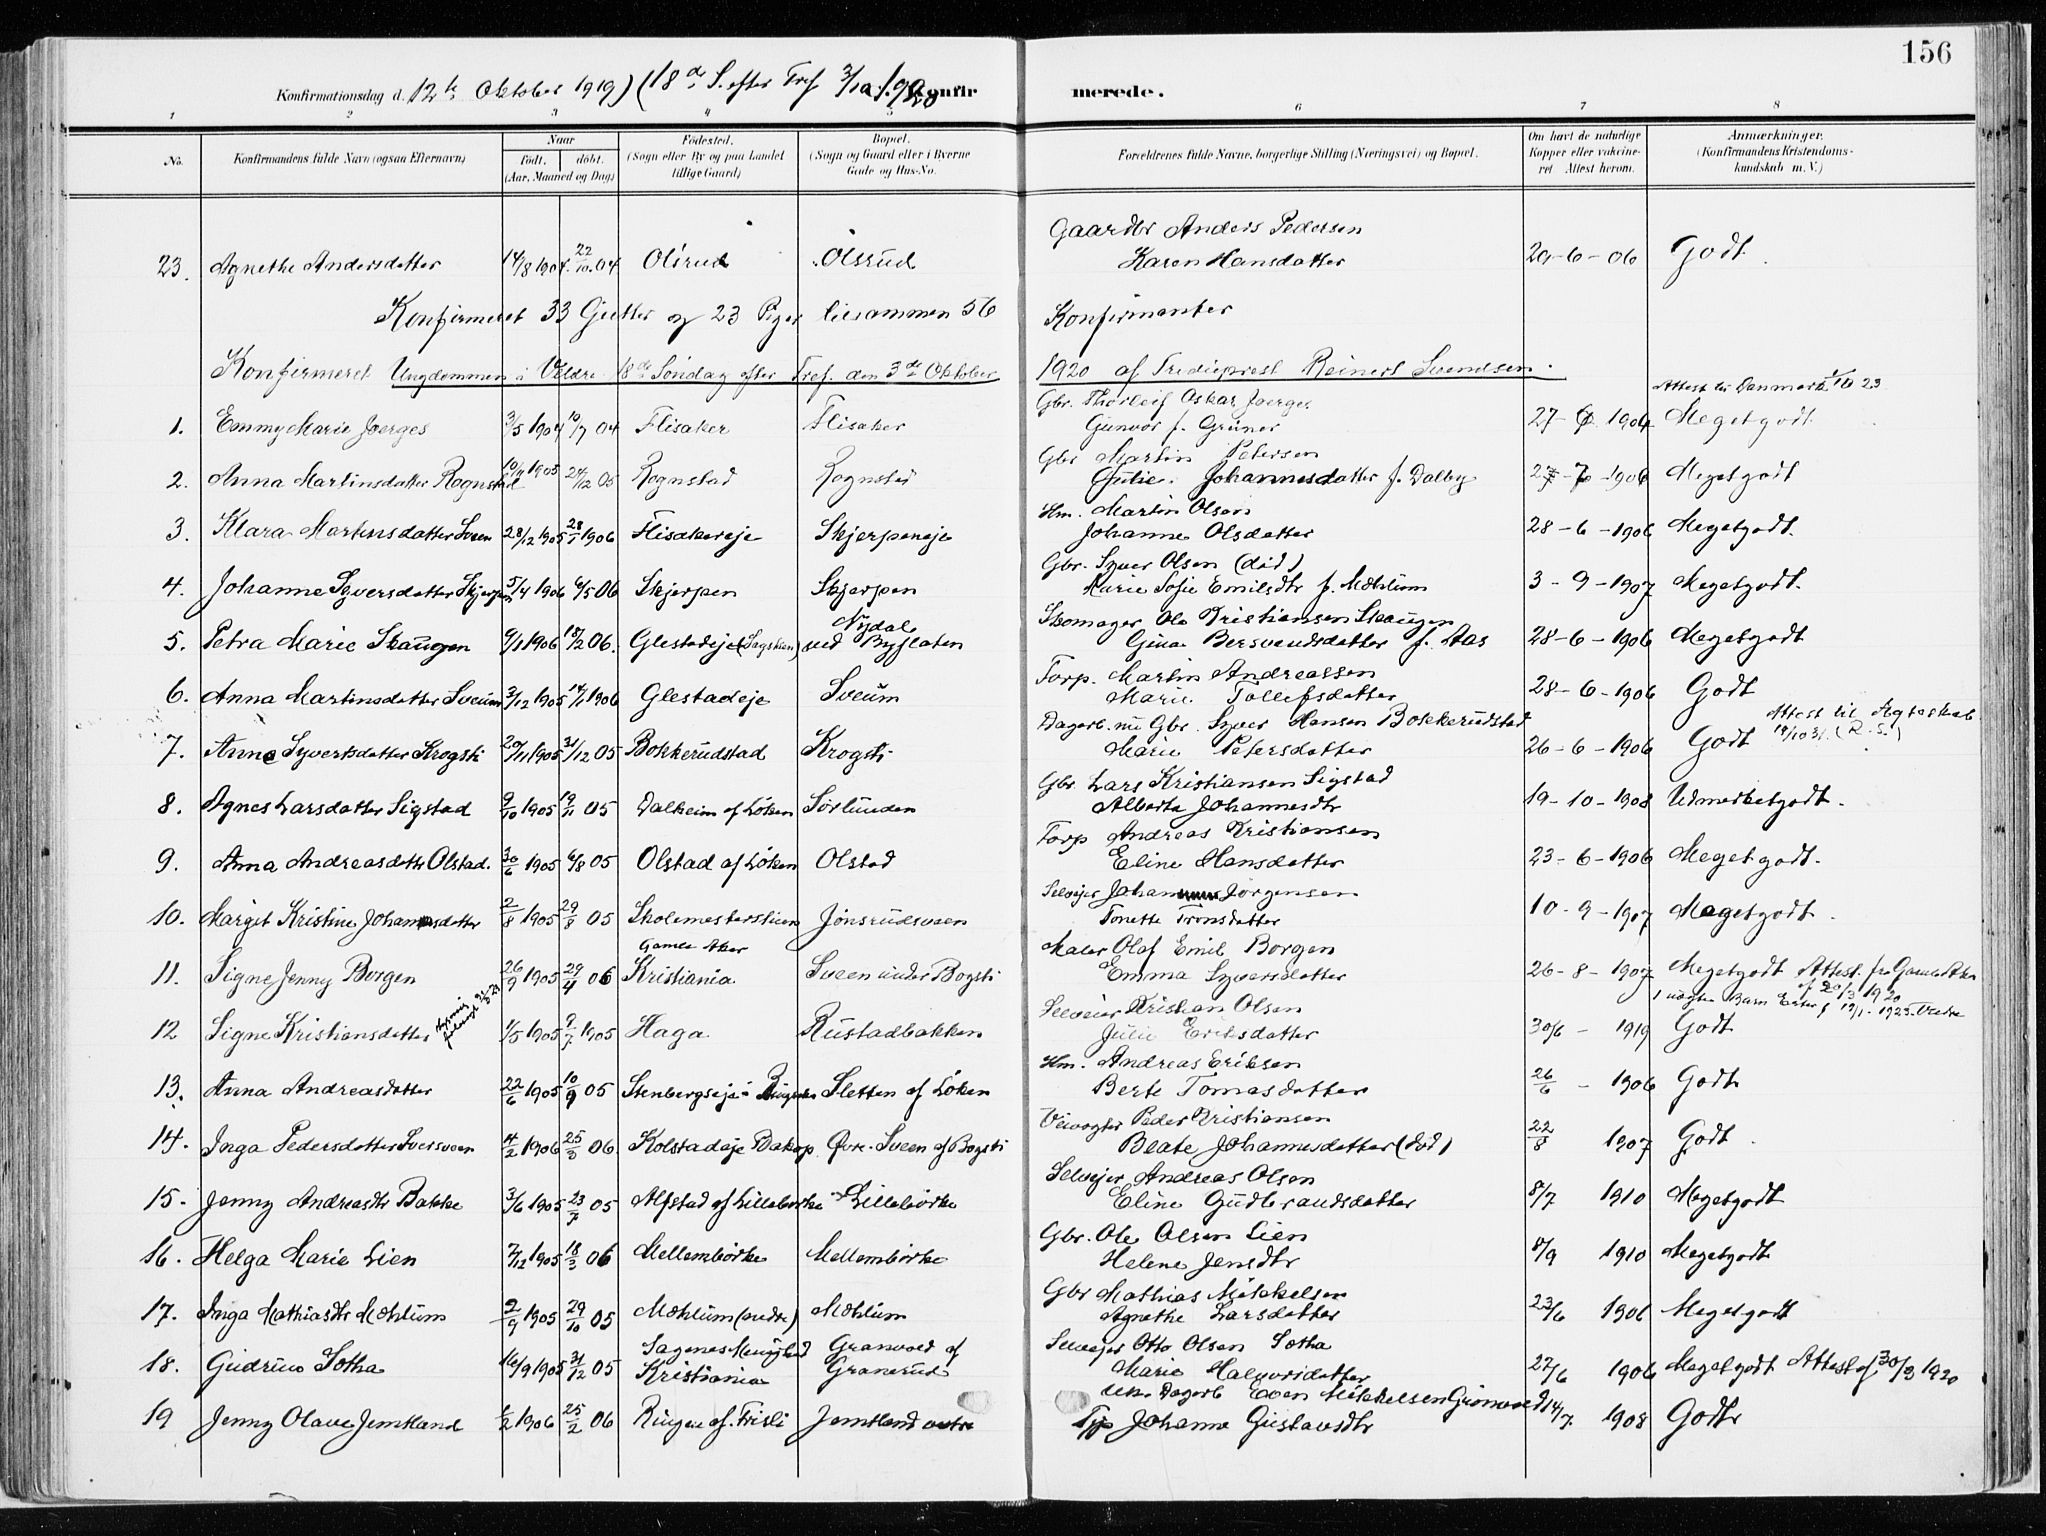 156
Konfirmationsdag d. 12te Oktober 1919) (18de S. efter Tref 3/10 1920 Konfirmerede.
1 2 3 4 5 6 7 8
No. Konfirmandens fulde Navn (ogsaa Efternavn) Naar født. døbt. (Aar, Maaned og Dag) Fødested. (Sogn eller By og paa Landet tillige Gaard) Bopæl. (Sogn og Gaard eller i Byerne Gade og Hus-No. Forældrenes fulde Navne, borgerlige Stilling (Næringsvei) og Bopæl. Om havt de naturlige Kopper eller vaccineret Attest herom. Anmærkninger. (Konfirmandens Kristendomskundskab m. V.)
Gaardbr Anders Pedersen
23. Agnethe Andersdatter 14/8 1904. 22/10.04 Olsrud Olsrud Karen Hansdatter 20-6-06 Godt.
Konfirmeret 33 Gutter og 23 Piger tilsammen 56 Konfirmanter
Konfirmeret Ungdommen i Veldre 18de Søndag efter Tref. den 3de Oktober 1920 af Tredieprest Reinert Svendsen.
Gbr. Thorleif Oskar Joerges Attest til Danmark 23
1. Emmy Marie Joerges 3/5 1904 10/7 04 Flisaker Flisaker Gunvor f. Grüner 27- 1904 Megetgodt.
Gbr Martin Petersen
2. Anna Martinsdatter Rognstad 10/11 1905 24/12 05 Rognstad Rognstad Julie Johannesdatter f. Dalby 27-7-1906 Megetgodt
Hm. Martin Olsen
3. Klara Martinsdatter Sveen 28/12 1905 28/1 1906 Flisakereje Skjerpeneje Johanne Olsdatter 28-6-1906 Megetgodt.
Gbr. Syver Olsen (død)
4. Johanne Syversdatter Skjerpen 5/4 1906 6/5 06 Skjerpen Skjerpen Marie Sofie Emilsdtr f. Mæhlum 3-9-1907 Megetgodt.
Skomager Ole Kristiansen Skaugen
5. Petra Marie Skaugen 6/1 1906 18/2 06. Glestadeje (Sagstuen) Nydal ved Byflaten Gina Bersvendsdatter f. Aas 28-6-1906 Megetgodt
Torp. Martin Andreassen
6. Anna Martinsdatter Sveum 3/12 1905 14/1 1906 Glestadeje Sveum Marie Tollefsdatter 28-6-1906 Godt
Dagarb. nu Gbr. Syver Hansen Bokkerudstad Attest til Ægteskab
7. Anna Syvertsdatter Krogsti 20/11 1905 31/12 05 Bokkerudstad Krogsti Marie Petersdatter 26-6-1906 Godt 19/10 31. (R.S.)
Gbr. Lars Kristiansen Sigstad
8. Agnes Larsdatter Sigstad 9/10 1905 19/11 05 Dalheim af Løken Sørlunden Alberte Johannesdtr 19-10-1908 Udmerketgodt.
Torp Andreas Kristiansen
9. Anna Andreasdatter Olstad. 30/6 1905 6/8 05 Olstad af Løken Olstad Eline Hansdatter 23-6-1906 Megetgodt.
Selveier Johan Jørgensen
10. Margit Kristine Johansdatter 2/8 1905 29/8 05 Skolemesterstuen Jønsrudsveen Tonette Tronsdatter 10-9-1907 Megetgodt.
Maler Olaf Emil Borgen
11. Signe Jenny Borgen 26/9 1905 29/4 06 Gamle Aker Kristiania Sveen under Bogsti Emma Syversdatter 26-8-1907 Megetgodt Attest fra Gamle Aker af 20/3 1920
Selveier Kristian Olsen
12 Signe Kristiansdatter 1/5 1905 9/7 1905 Haga Rustadbakken Julie Eriksdatter 30/6-1919 Godt
Hm. Andreas Eriksen
13. Anna Andreasdatter 22/6 1905 10/9 05 Stenbergseje i Ringsaker Sletten af Løken Berte Tomasdatter 26/6-1906 Godt
Veivogter Peder Kristiansen
14. Inga Pedersdatter Sversveen 4/2 1906 25/3 06. Kolstadeje Bakop. Øvre-Sveen af Bogsti Beate Johannesdatter (død) 22/8 1907 Godt.
Selveier Andreas Olsen
15. Jenny Andreasdtr Bakke 3/6 1905 23/7 05 Alfstad af Lillebørke Lillebørke Eline Gudbrandsdatter 8/7 1910 Megetgodt
Gbr. Ole Olsen Lien
16. Helga Marie Lien 7/12 1905 18/2 06 Mellembørke Mellembørke Helene Jensdtr 8/9 1910 Megetgodt
Gbr Mathias Mikkelsen
17. Inga Mathiasdtr Mæhlum 2/9 1905 29/10 05 Mæhlum (nedre) Mæhlum Agnethe Larsdatter 23/6 1906 Megetgodt
Selveier Otto Olsen Sotha
18. Gudrun Sotha 16/9 1905 31/12 05 Sagenes Menighed Kristiania Granvold af Granerud Marie Halvorsdatter 27/6 1906 Megetgodt Attest af 30/3 1920
Uk. Dagarb Even Mikkelsen
19 Jenny Olave Jemtland 1/2 1906 25/2 06 Ringen af. Frisli Jemtland østre Tpp Johanne Gustavsdtr 14/7. 1908 Godt